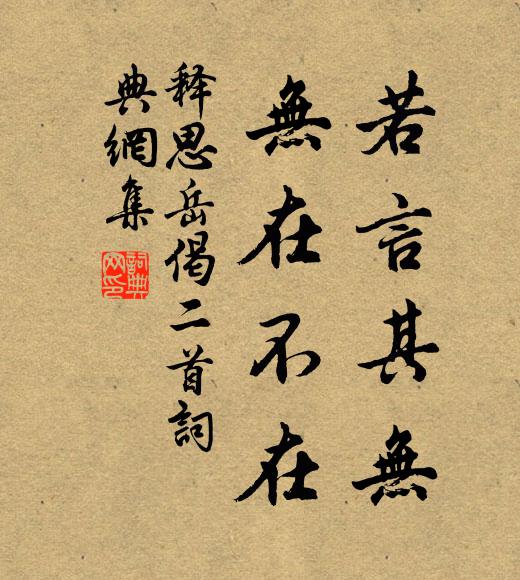 若言其無
無在不在
释思岳偈二首詞
典網集
詞典
网印